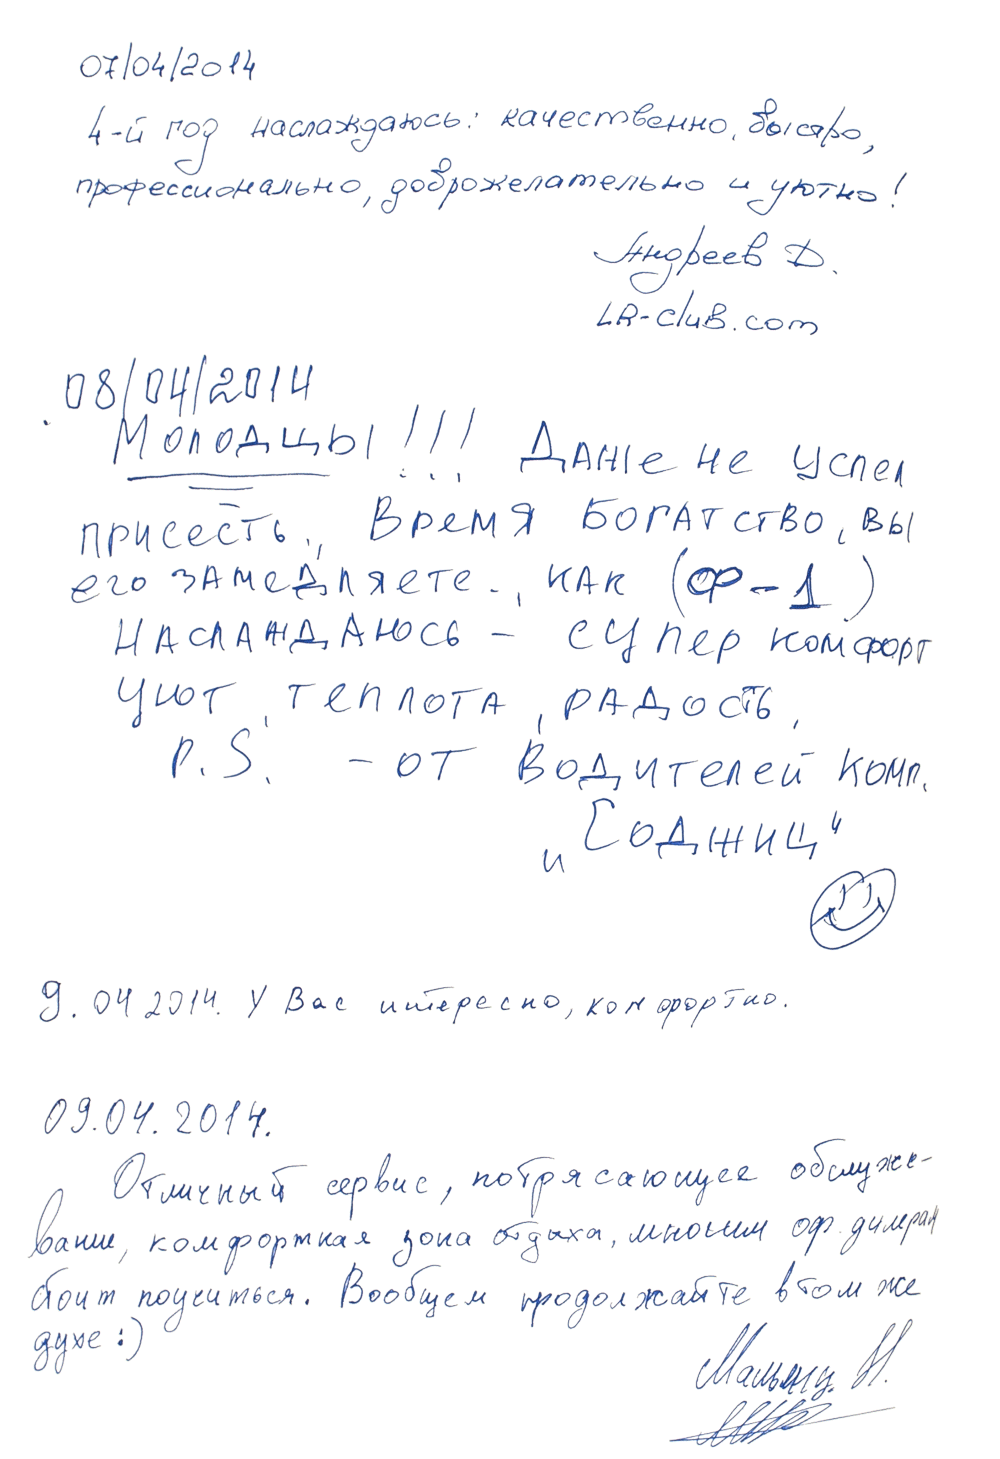 07/04/2014
4-й год наслаждаюсь: качественно, быстро,
профессионально, доброжелательно и уютно!
Андреев Д.
LR-club.com
08/04/2014
Молодцы!!! Даже не успел
присесть., Время богатство, вы
его замедляете., как (Ф-1)
наслаждаюсь - супер комфорт
уют, теплота, радость,
P.S. - от водителей комп.
„Соджиц"
9.04 2014. У Вас интересно, комфортно.
09.04.2014.
Отличный сервис, потрясающее обслужи-
вание, комфортная зона отдыха, многим оф. дилерам
стоит поучиться. Вообщем продолжайте в том же
духе :)
Н.